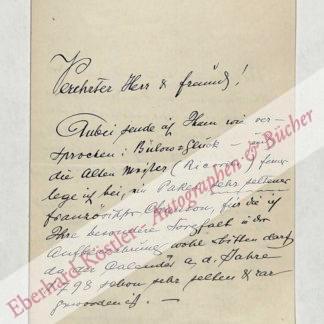 Verehrter Herr & Freund!
Anbei sende ich Ihnen wie ver-
sprochen: Bülows Glück –
die Alten Meister (Ricordi) ferner
lege ich bei, ein Paket sehr seltener
französischer Chanson, für die ich
Ihre besondere Sorgfalt in der
Aufbewahrung wohl bitten darf
da der Calender a. d. Jahre
1798 schon sehr selten & rar
geworden ist. –
Eberhard Köstler Autographen & Bücher